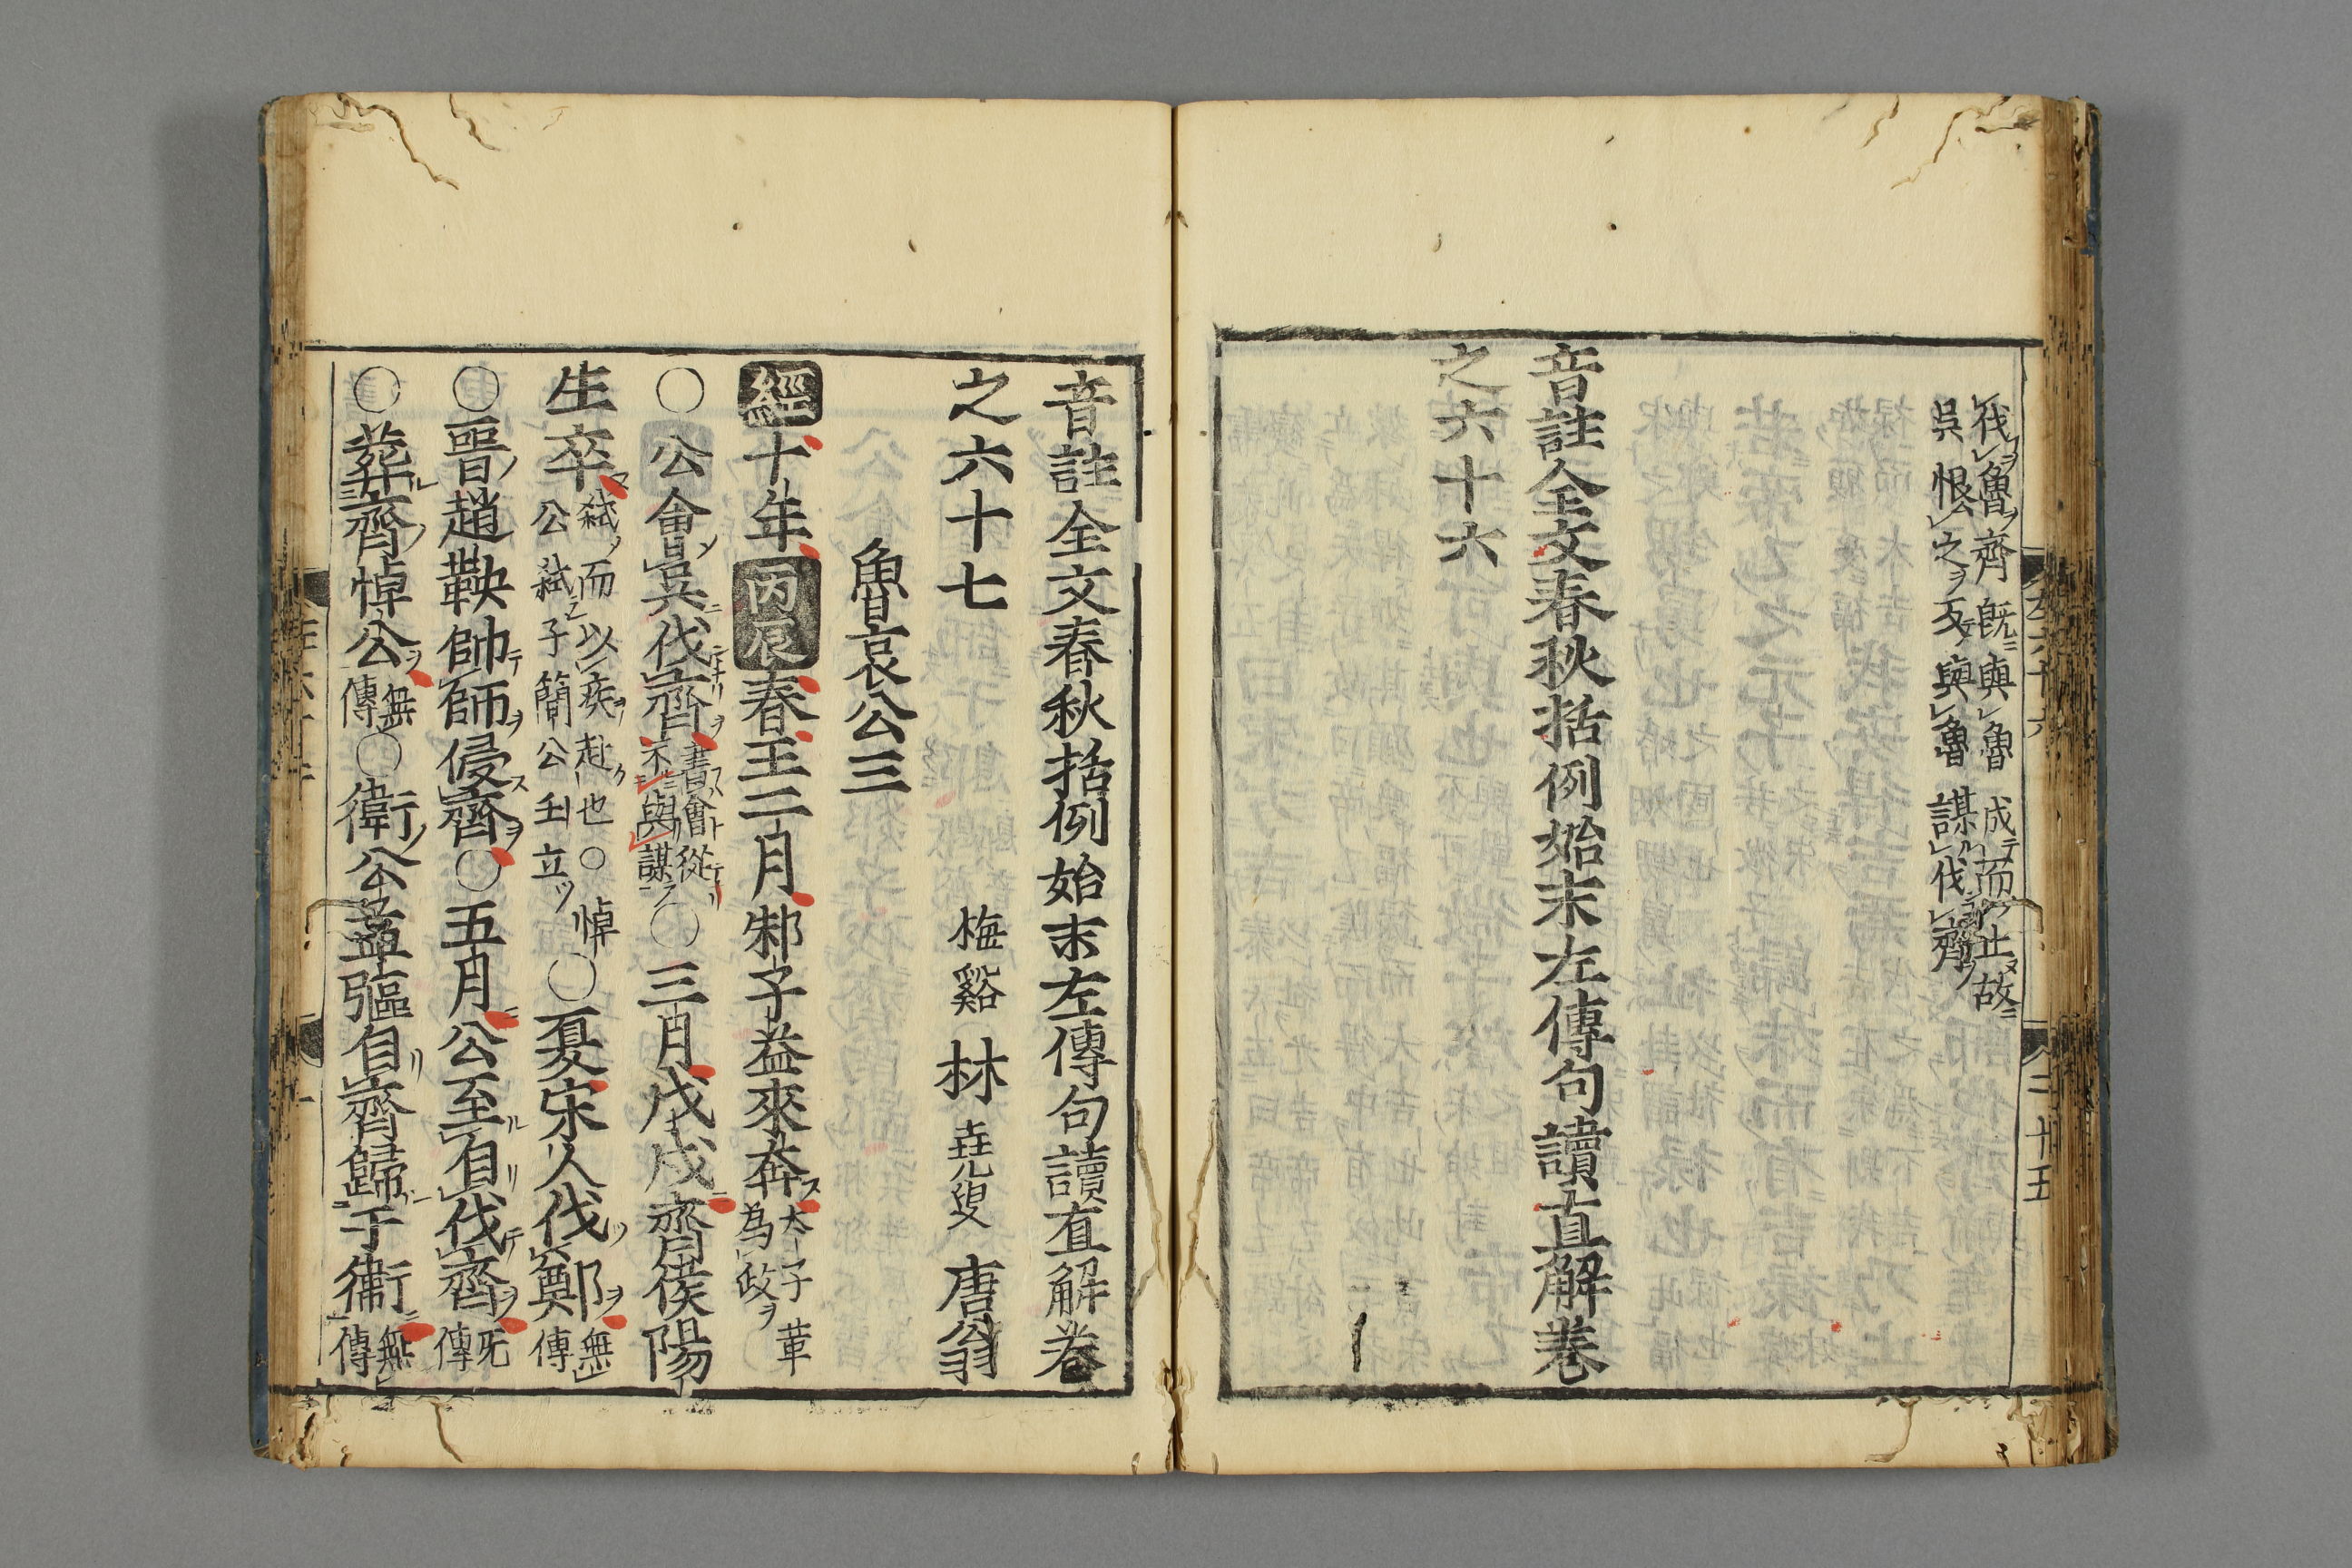 伐魯齊既與魯成而止故
吳恨之反與魯謀伐齊
音註全文春秋括例始末左傳句讀直解卷
之六十六
音註全文春秋括例始末左傳句讀直解卷
之六十七 梅谿林堯叟唐翁
魯哀公三
經十年丙辰春王二月邾子益來奔太子革為政
○公會吳伐齊書會從不與謀○三月戊戌齊侯陽
生卒弒而以疾赴也○悼公弒子簡公壬立○夏宋人伐鄭無傳
○晉趙鞅帥師侵齊○五月公至自伐齊無傳
○葬齊悼公無傳○衛公孟彄自齊歸于衛無傳